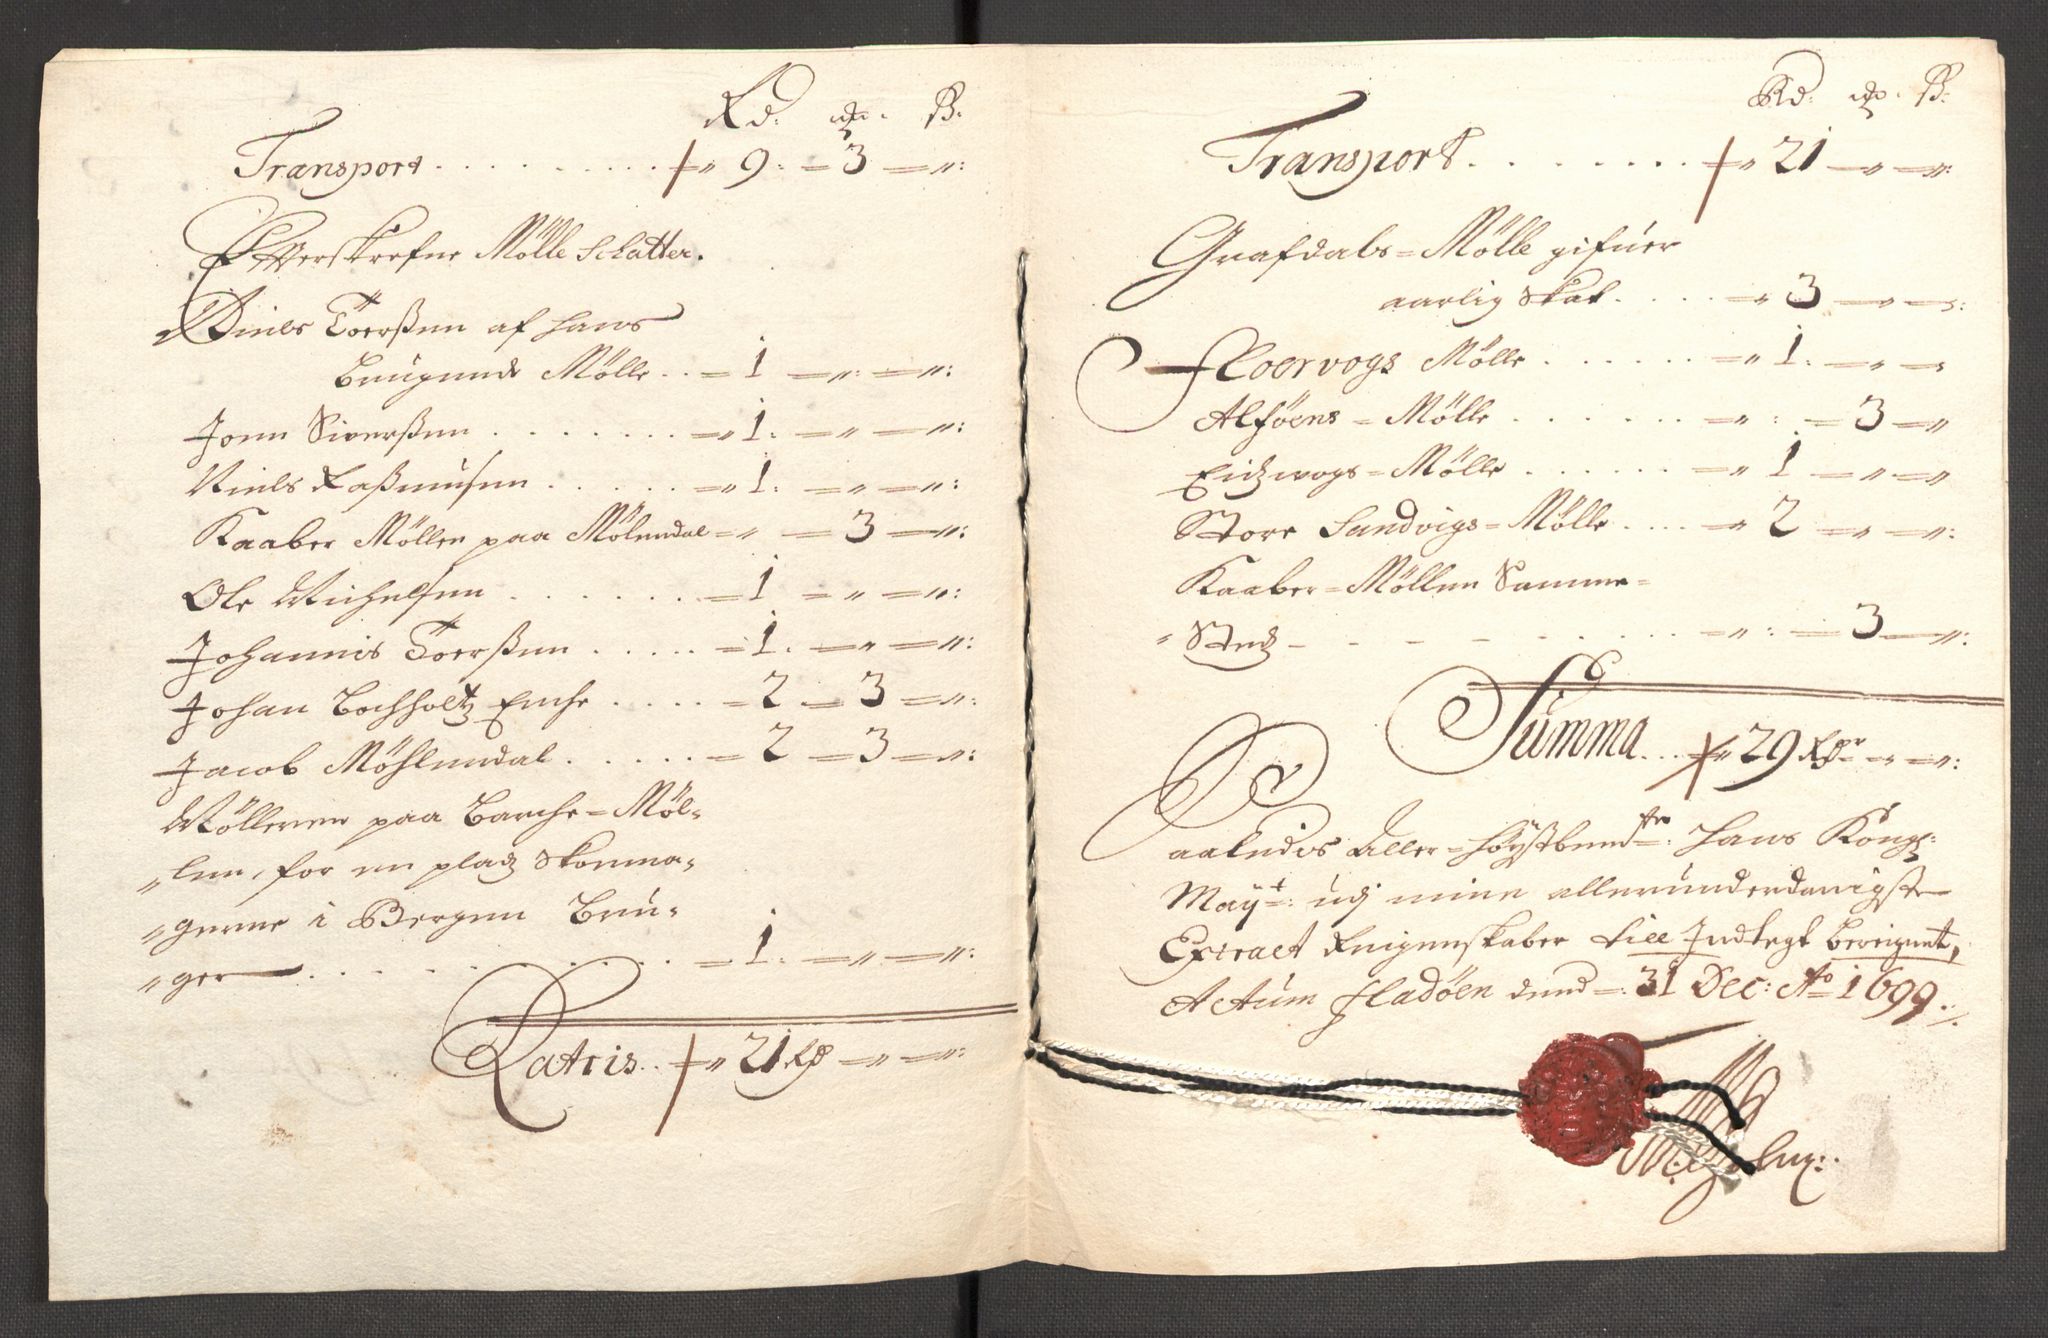 Rd: ₰. ß:
Transport . . . . . . . . . 9: 3 ":
Efterskrefne Mølle Schatter.
Niels Toerßen af hans
brugende Mølle . . 1 ": ":
Jonn Siverßen . . . . . . . 1: " ":
Niels Raßmusen . . . . . 1: " ":
Kaaber Møllen paa Mølendal " 3 ":
Ole Michelsen . . . . . . . 1 " ":
Johannis Toerßen . . . . . 1. " ":
Johan Bochholtz Enche . . . . . 2 3 ":
Jacob Møhlendal . . . . . . 2 3 ":
Mølleren paa Barche=Møl-
"len, for en pladz Skouma-
"gerne i Bergen Bru-
"ger . . . . . . . . . . 1. " ":
Latris . . 21 Rd " ":
Rd: ₰. ß:
Transport . . . . . . . 21 " ":
Grafdals=Mølle gifuer
aarlig Skat . . . . 3 " ":
Floervogs Mølle . . . . . . 1: " "
Alføens=Mølle . . . . . . " : 3 "
Eidzvogs=Mølle . . . . . . 1 " "
Store Sandvigs=Mølle . . . . 2 " ":
Kaaber=Møllen Samme=
"Stedz . . . . . . . . ": 3 ":
Summa . . . 29 Rdr " ":
Saaledis Aller=høystbemte: Hans Kongl:
Mayt: udj mine allerunderdanigste
Extract Regenskaber till Indtegt beregnet,
Actum Fladøen dend: 31 Dec: Ao 1699.